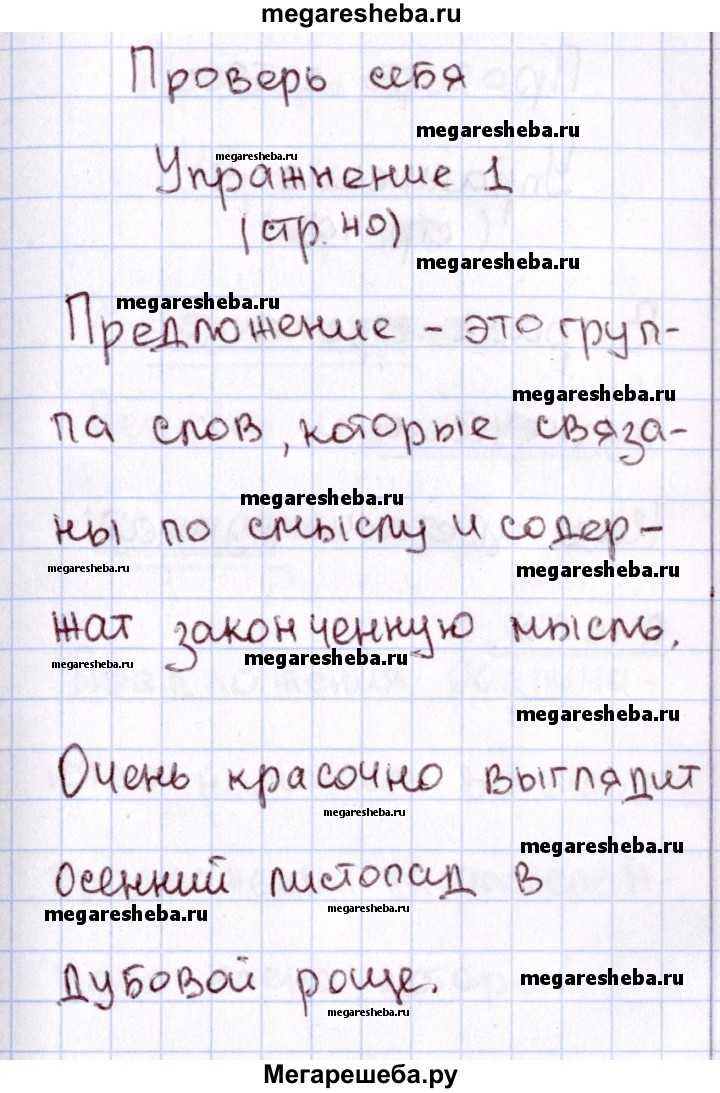 megaresheba.ru
Проверь себя
megaresheba.ru
megaresheba.ru
Упражнение 1
(стр. 40)
megaresheba.ru
megaresheba.ru
Предложение – это груп-
megaresheba.ru
па слов, которые связа-
megaresheba.ru
ны по смыслу и содер-
megaresheba.ru
megaresheba.ru
жат законченную мысль.
megaresheba.ru
megaresheba.ru
megaresheba.ru
Очень красочно выглядит
megaresheba.ru
megaresheba.ru
осенний листопад в
megaresheba.ru
megaresheba.ru
дубовой роще.
megaresheba.ru
megaresheba.ru
Мегарешеба.ру